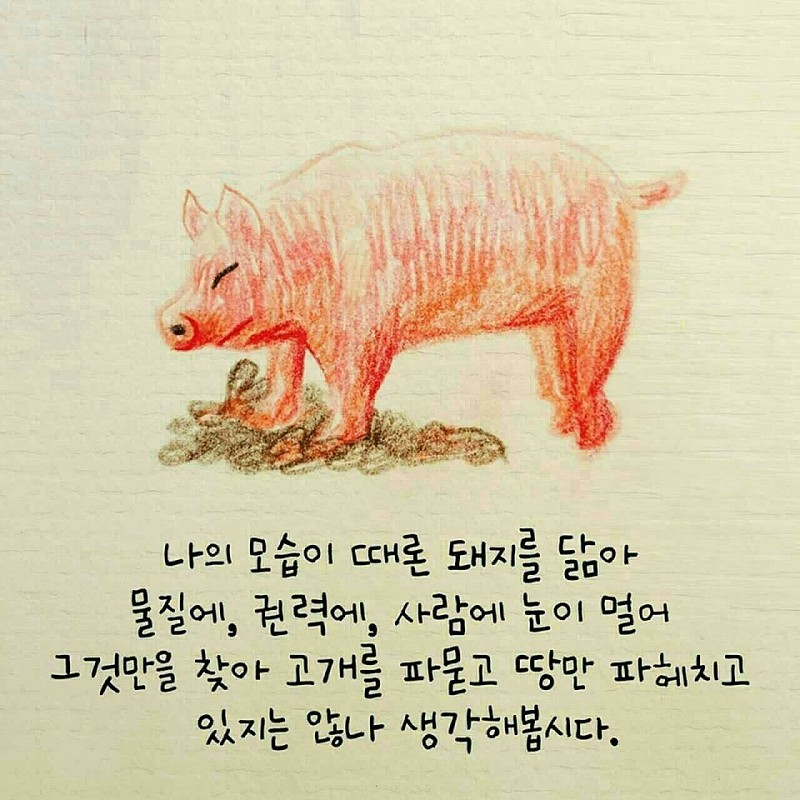 나의 모습이 때론 돼지를 닮아
물질에, 권력에, 사람에 눈이 멀어
그것만을 찾아 고개를 파묻고 땅만 파헤치고
있지는 않나 생각해봅시다.